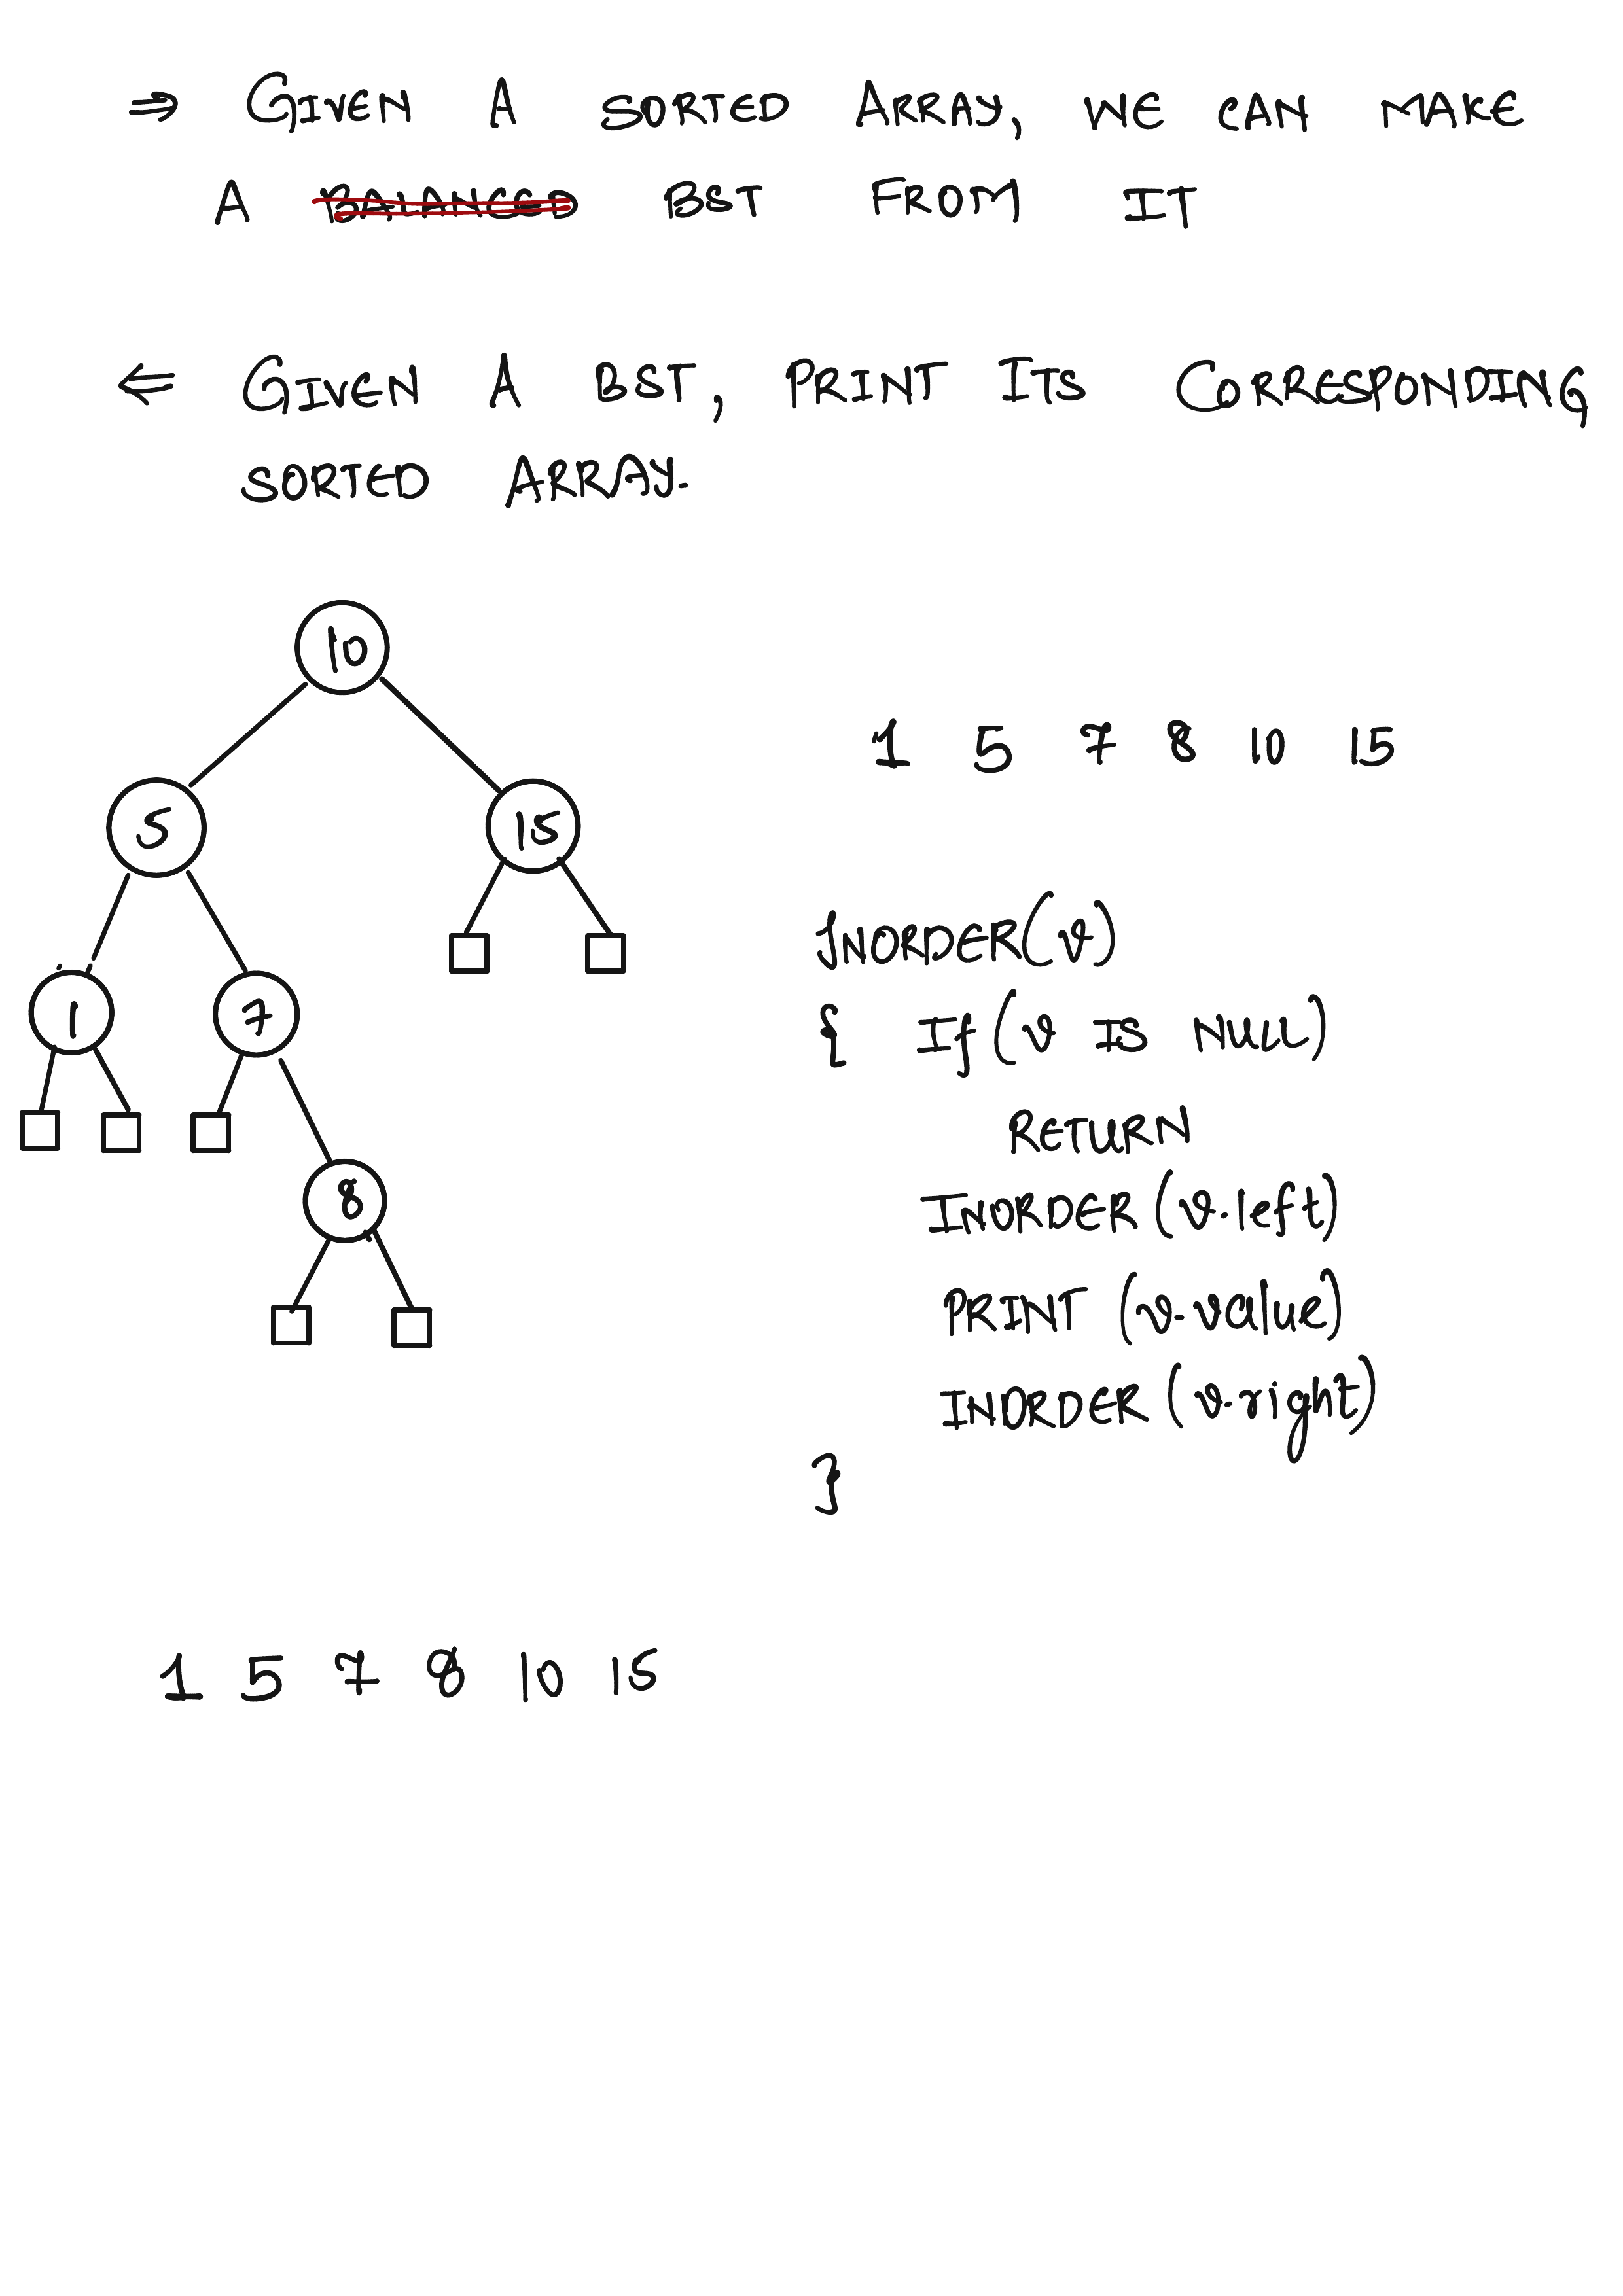 ⇒ GIVEN A SORTED ARRAY, WE CAN MAKE
A BALANCED BST FROM IT
⇐ GIVEN A BST, PRINT ITS CORRESPONDING
SORTED ARRAY.
10
5 15
1 7
8
1 5 7 8 10 15
INORDER(v)
{ If (v IS NULL)
RETURN
INORDER (v.left)
PRINT (v.value)
INORDER (v.right)
}
1 5 7 8 10 15